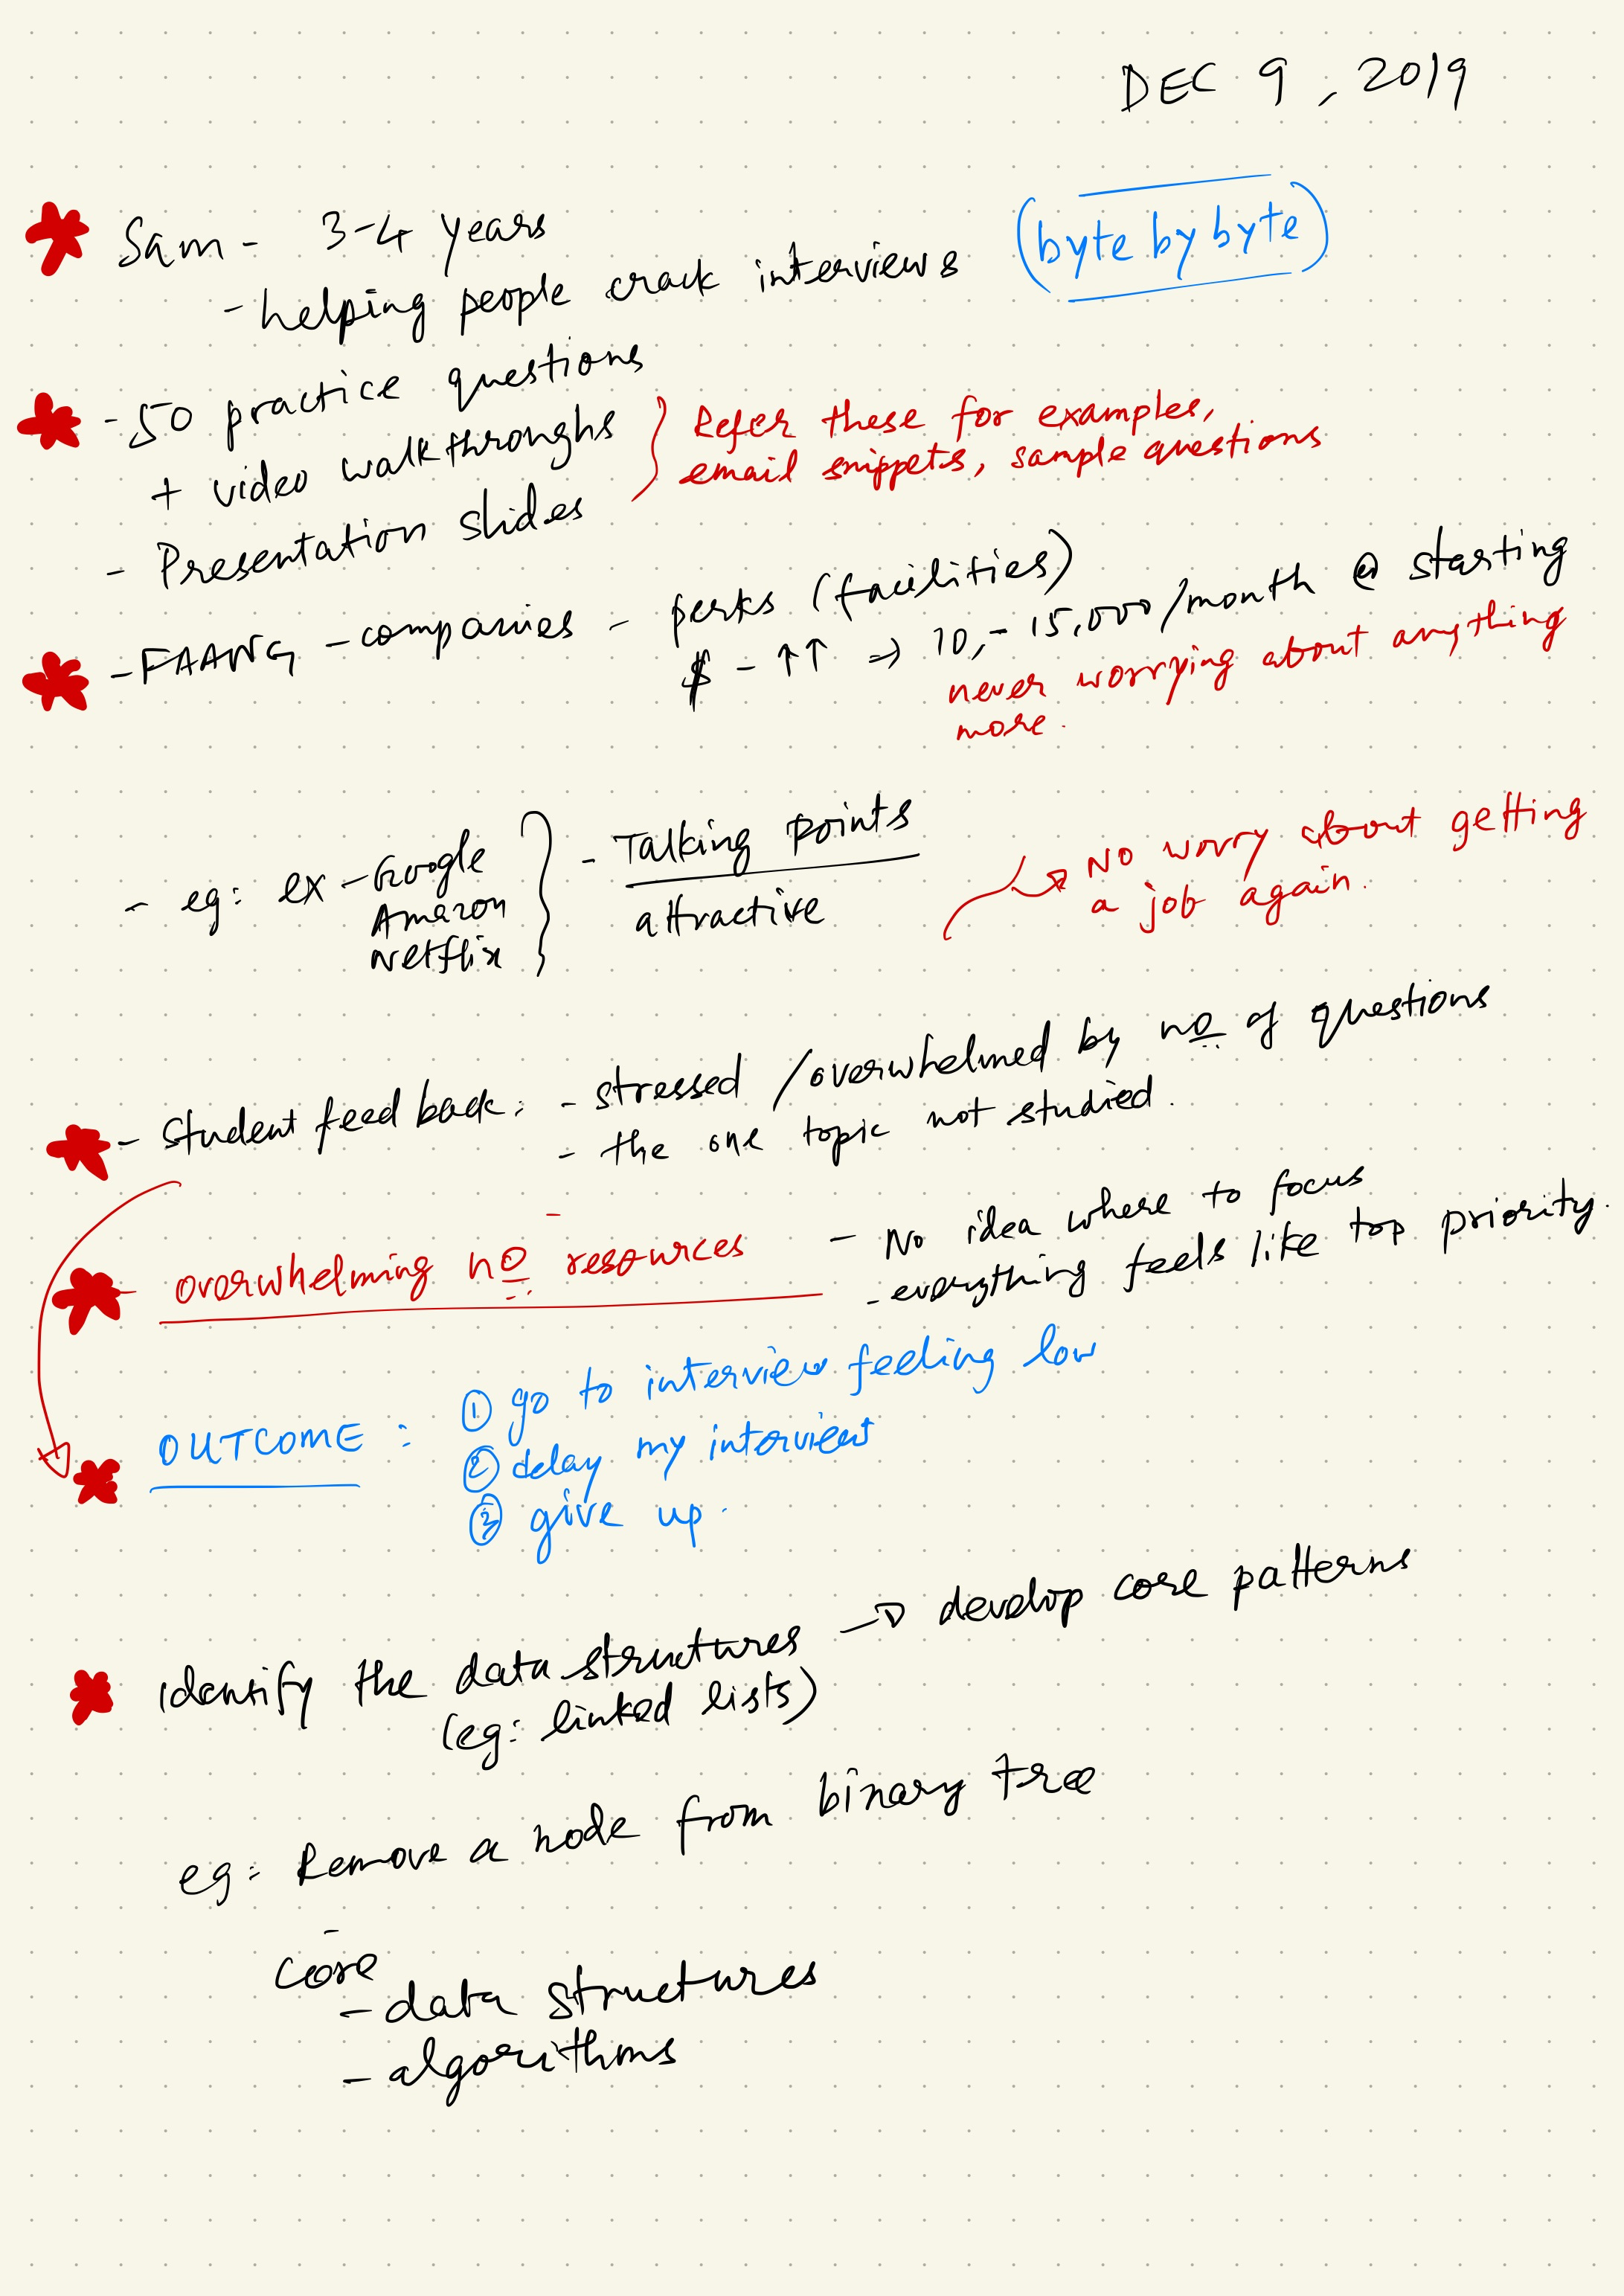 DEC 9, 2019
Sam - 3-4 years
- helping people crack interviews (byte by byte)
- 50 practice questions
+ video walkthroughs
- Presentation slides
Refer these for examples,
email snippets, sample questions
- FAANG - companies - perks (facilities)
$ - ↑↑ ⇒ 10,- 15,000/month @ starting
never worrying about anything
more.
- eg: ex - Google
Amazon
Netflix
- Talking points
attractive
→ No worry about getting
a job again.
- Student feed back: - stressed / overwhelmed by no of questions
- the one topic not studied.
- overwhelming no resources
- No idea where to focus
- everything feels like top priority.
OUTCOME : ① go to interview feeling low
② delay my interview
③ give up.
identify the data structures → develop core patterns
(eg: linked lists)
eg: Remove a node from binary tree
core
- data structures
- algorithms